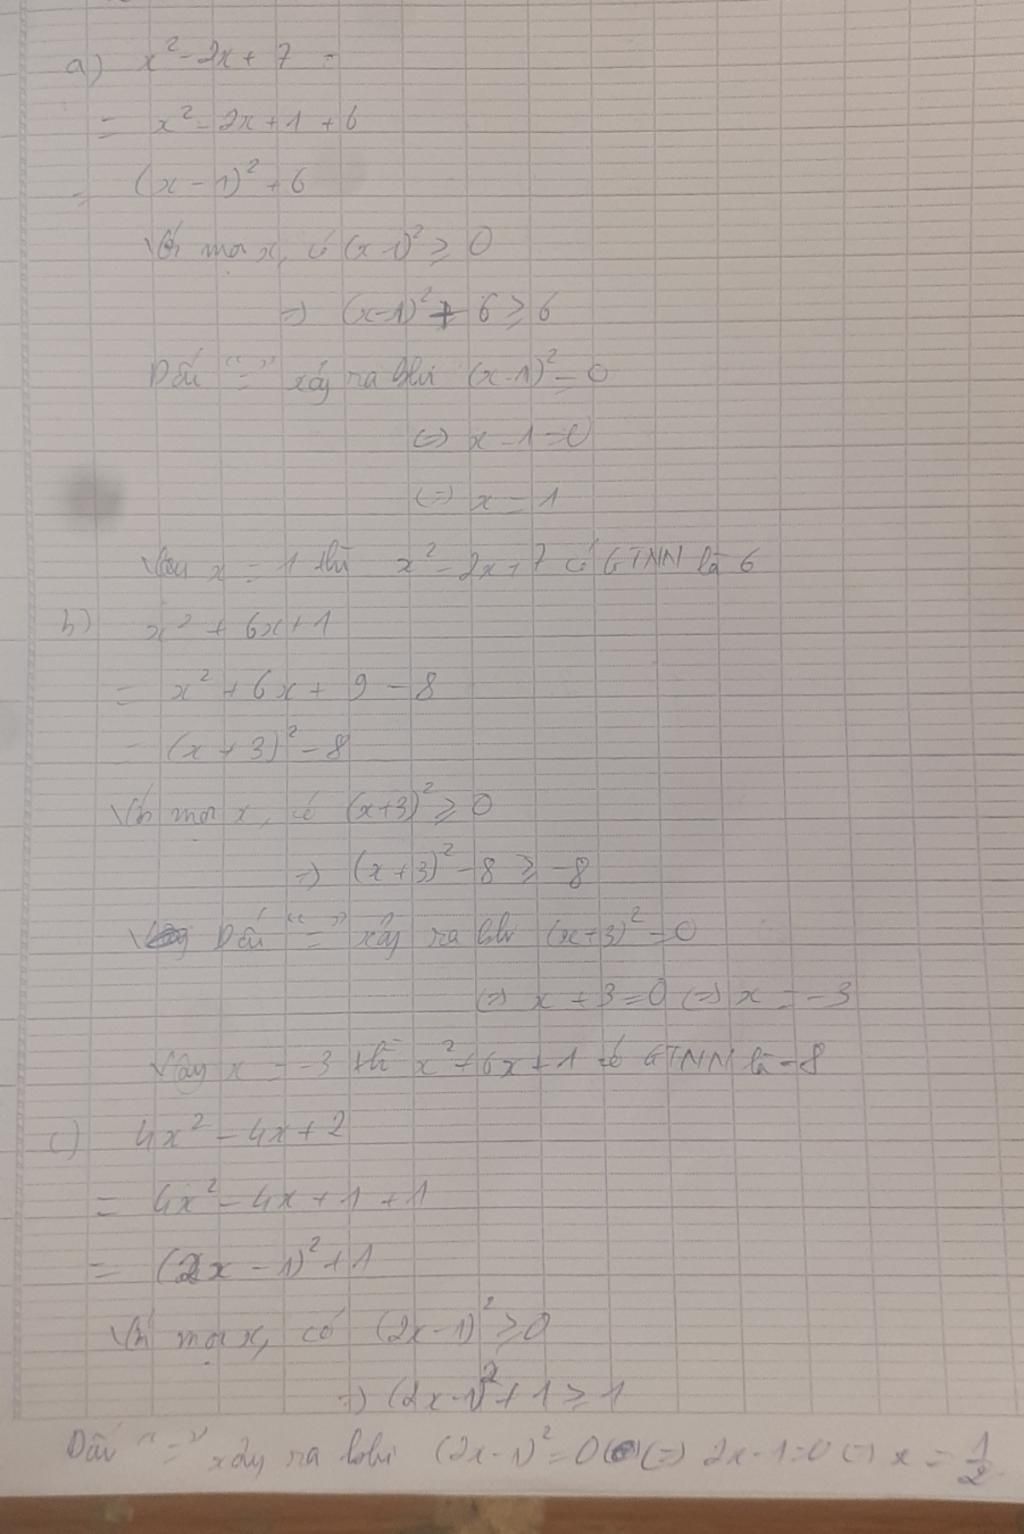 a) x² - 2x + 7 =
= x² - 2x + 1 + 6
= (x - 1)² + 6
Với mọi x, có (x-1)² ≥ 0
=> (x-1)² + 6 ≥ 6
Dấu "=" xảy ra khi (x-1)² = 0
<=> x - 1 = 0
<=> x = 1
Vậy x = 1 thì x² - 2x + 7 có GTNN là 6
b) x² + 6x + 1
= x² + 6x + 9 - 8
= (x + 3)² - 8
Với mọi x, có (x+3)² ≥ 0
=> (x+3)² - 8 ≥ -8
Dấu "=" xảy ra khi (x+3)² = 0
<=> x + 3 = 0 <=> x = -3
Vậy x = -3 thì x² + 6x + 1 có GTNN là -8
c) 4x² - 4x + 2
= 4x² - 4x + 1 + 1
= (2x - 1)² + 1
Với mọi x, có (2x-1)² ≥ 0
=> (2x-1)² + 1 ≥ 1
Dấu "=" xảy ra khi (2x-1)² = 0 <=> 2x-1=0 <=> x = 1/2